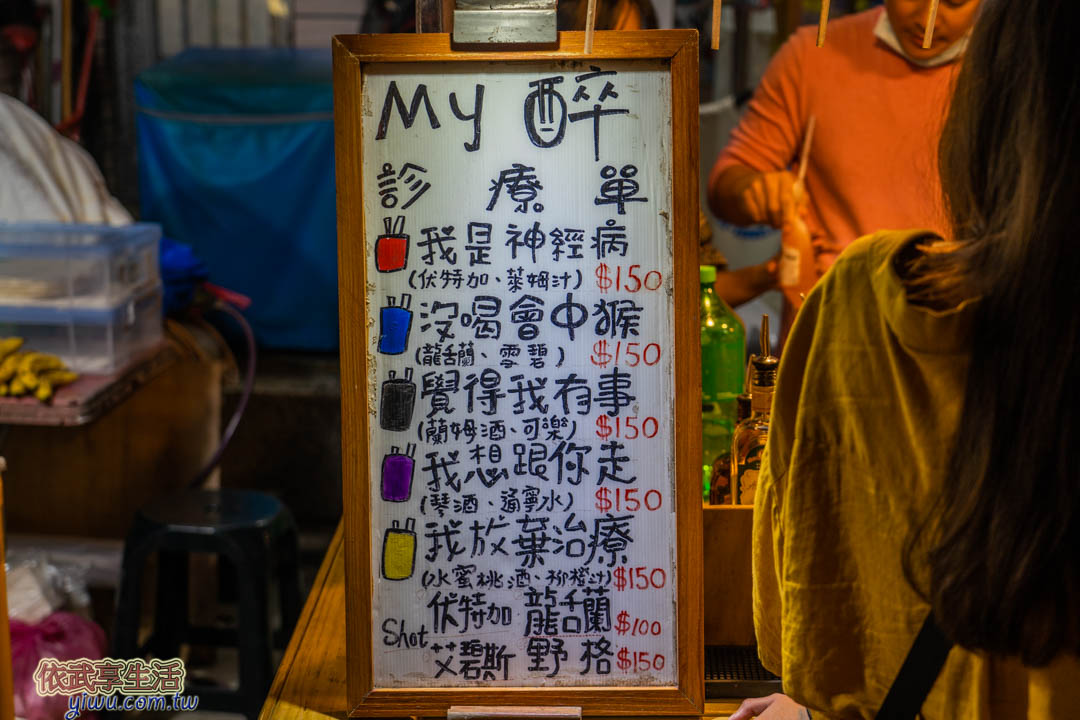 My 醉
診療單
我是神經病
(伏特加、萊姆汁) $150
沒喝會中猴
(龍舌蘭、雪碧) $150
覺得我有事
(蘭姆酒、可樂) $150
我想跟你走
(琴酒、通寧水) $150
我放棄治療
(水蜜桃酒、柳橙汁) $150
Shot 伏特加 龍舌蘭 $100
艾碧斯 野格 $150
依武享生活
yiwu.com.tw